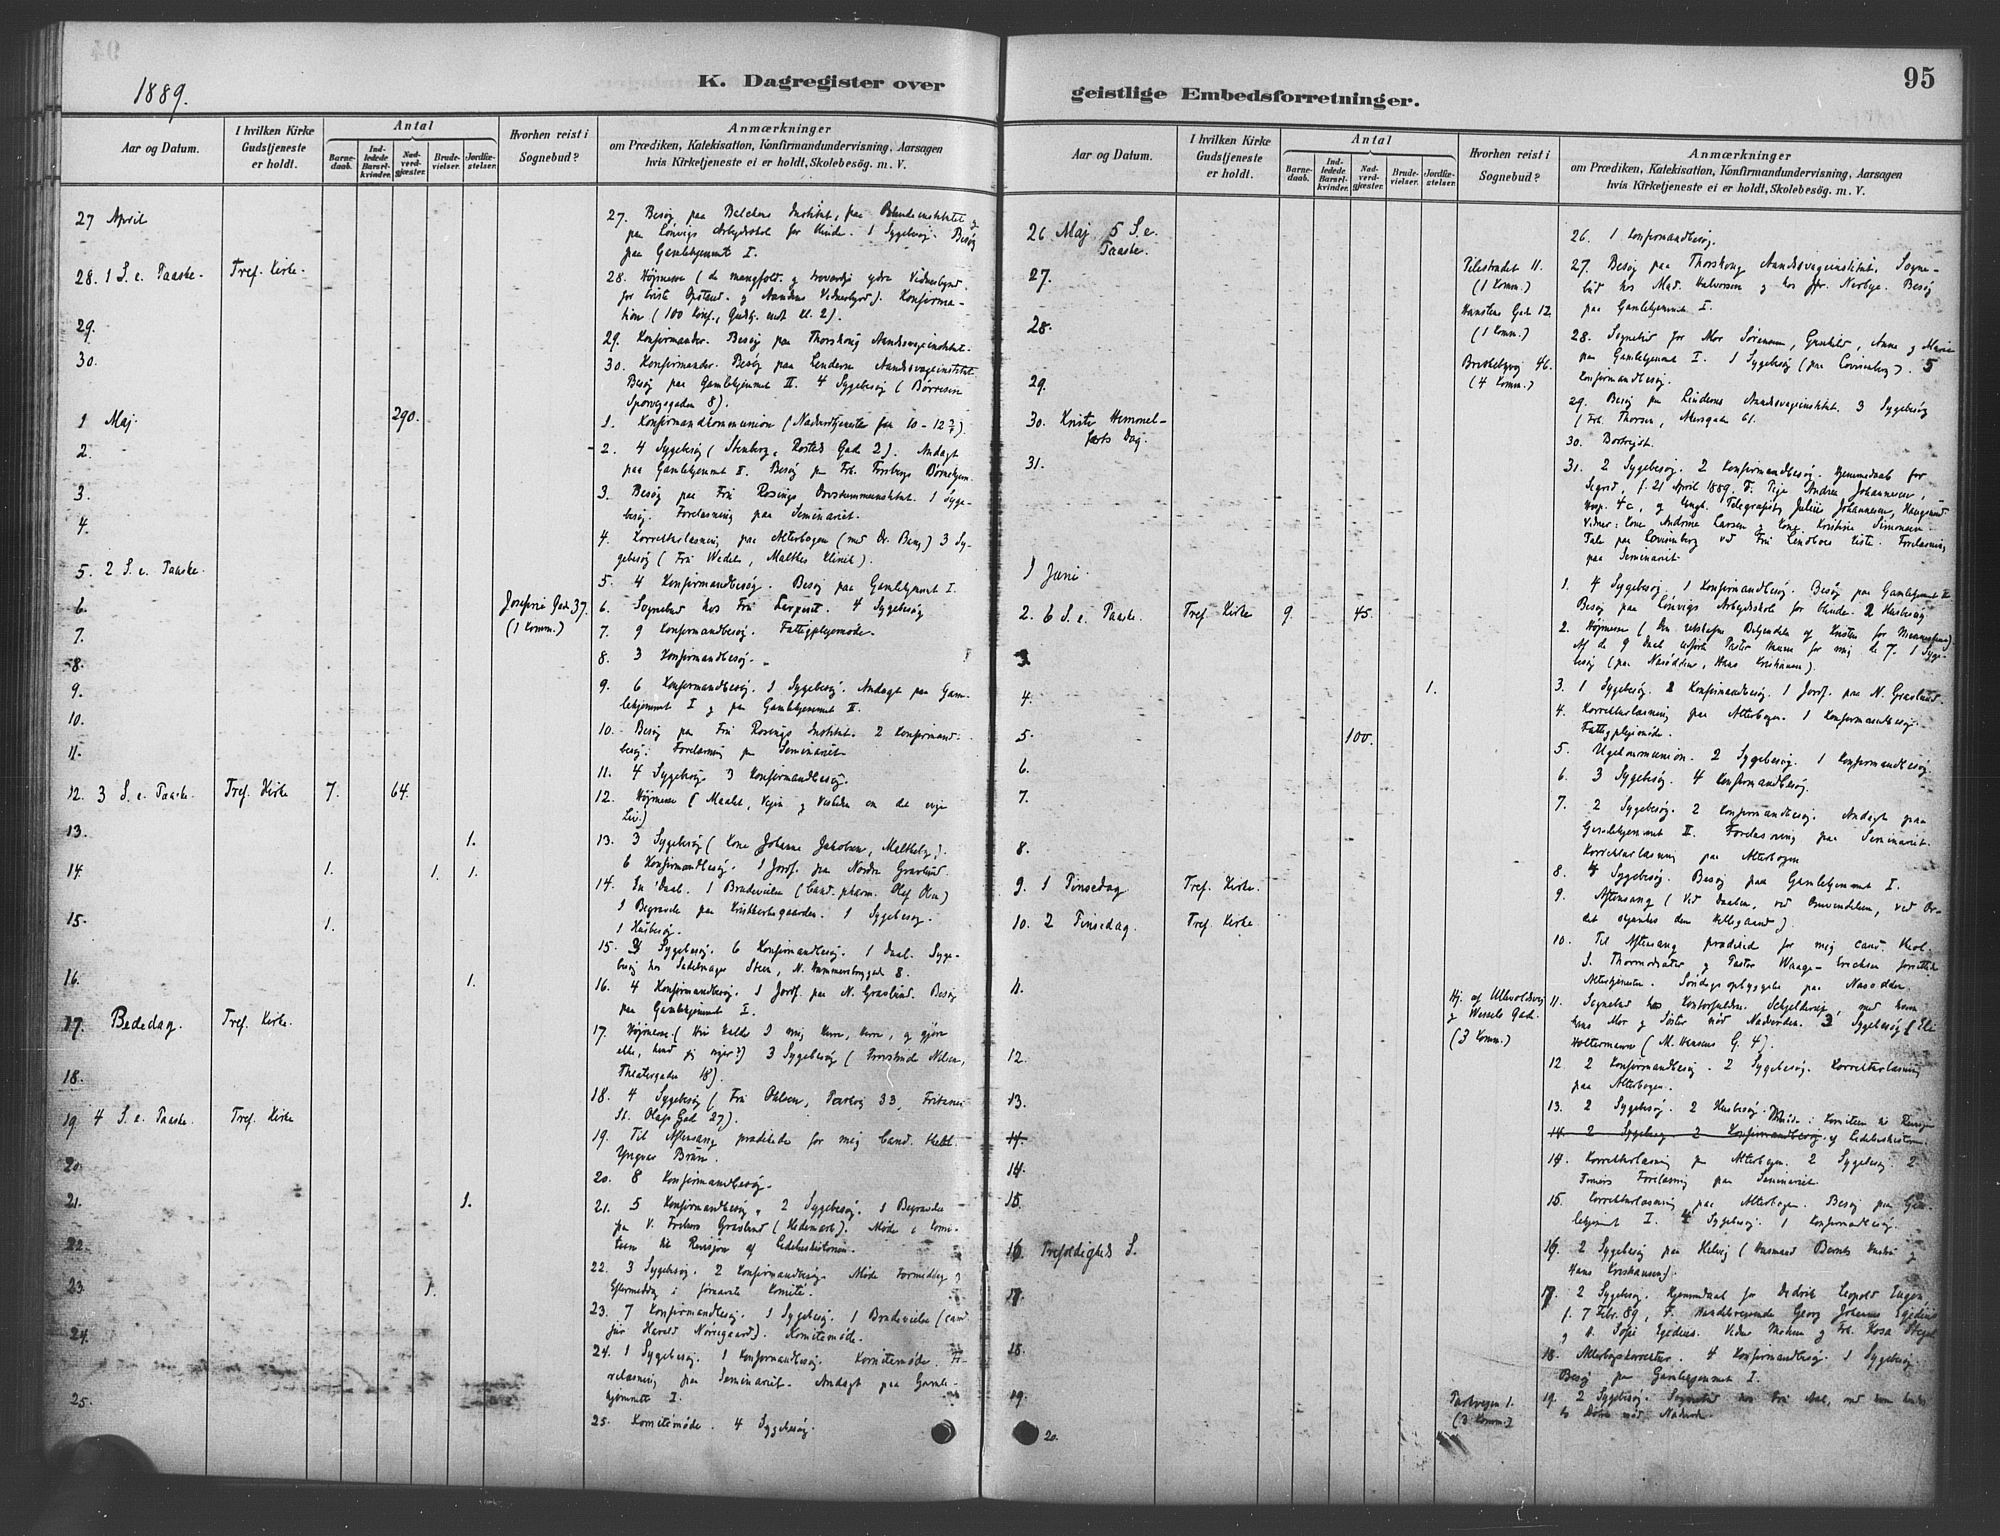 1889.
K. Dagregister over
Aar og Datum.
I hvilken Kirke
Gudstjeneste
er holdt.
Antal
Barne-
daab.
Ind-
ledede
Barsel-
kvinder.
Nad-
verd-
gjæster.
Brude-
vielser.
Jordfæ-
stelser.
Hvorhen reist i
Sognebud?
Anmærkninger
om Prædiken, Katekisation, Konfirmandundervisning, Aarsagen
hvis Kirketjeneste ei er holdt, Skolebesög. m. V.
27 April
27. Besög paa Institut, fra Blindeinstitutet
paa Arbejdsskole for blinde. 1 Sygebesög. Besög
paa Gamlehjemmet I.
28. 1 S. e. Paaske. Tref. Kirke.
28. Højmesse
Konfirma-
tion (100 Konf., kl. 2).
29.
29. Konfirmander. Besög paa Thorshaug Aandssvageinstitut.
30.
30. Konfirmander. Besög paa Lindems Aandssvageinstitut.
Besög paa Gamlehjemmet II. 4 Sygebesög (Børresen
Sporvejsgaden 8).
1 Maj. 290.
1. Konfirmandkommunion
2.
2. 4 Sygebesög (Stenberg, Rosteds Gade 2). Andagt
paa Gamlehjemmet II. Besög
3.
3. Besög paa Fru Rosings Døvstummeinstitut. 1 Syge-
besög. Forelæsning paa Seminariet.
4.
4. Korrekturlæsning paa Alterbogen (med Dr. Bang) 3 Sy-
gebesög (Fru Wedel, Malthes Klinik).
5. 2 S. e. Paaske.
5. 4 Konfirmandbesög. Besög paa Gamlehjemmet I.
6. Josefine Gade 37.
(1 Komm.)
6. Sognebud hos Fru 4 Sygebesög
7.
7. 9 Konfirmandbesög. Fattigplejemøde.
8.
8. 3 Konfirmandbesög.
9.
9. 6 Konfirmandbesög. 1 Sygebesög. Andagt paa Gam-
lehjemmet I og paa Gamlehjemmet II.
10.
10. Besög paa Fru Rosings Institut. 2 Konfirmand-
besög. Forelæsning paa Seminariet.
11.
11. 4 Sygebesög 3 Konfirmandbesög.
12. 3 S. e. Paaske. Tref. Kirke 7. 64.
12. Højmesse (Maalet, Vejen og
Liv)
13. 1.
13. 3 Sygebesög (Kone Johanne Jakobsen,
6 Konfirmandbesög. 1 Jordf. paa Nordre Gravlund.
14. 1. 1. 1.
14. En Daab. 1 Brudevielse (Cand. pharm. Olaf
1 Begravelse paa Krist Kirkegaarden. 1 Sygebesög.
1 Husbesög.
15. 1.
15. 3 Sygebesög. 6 Konfirmandbesög. 1 Daab. Syge-
besög hos Sadelmager Steen, N. 8.
16. 1.
16. 4 Konfirmandbesög. 1 Jordf. paa N. Gravlund. Besög
paa Gamlehjemmet I.
17. Bededag. Tref. Kirke.
17. Højmesse (Hvi kalde I mig Herre, Herre, og gjøre
ikke, hvad jeg siger?) 3 Sygebesög
Theatergaden 18).
18.
18. 4 Sygebesög (Fru Ohlsen, Parkvej 33,
St. Olafs Gad 27).
19. 4 S. e. Paaske Tref. Kirke
19. Til Aftensang prædikede for mig Cand.
Yngvar Brun.
20.
20. 8 Konfirmandbesög.
21. 1.
21. 5 Konfirmandbesög, 2 Sygebesög. 1 Begravelse
paa V. Frelsers Gravlund (Hedemark). Møde i Komi-
teen til Revision af Bibelhistorien.
22.
22. 3 Sygebesög. 2 Konfirmandbesög. Møde Formiddag og
Eftermiddag i førnævnte Komité.
23. 1.
23. 7 Konfirmandbesög. 1 Sygebesög. 1 Brudevielse (cand
jur Harald Nörregaard). Komitemøde.
24.
24. 1 Sygebesög. 1 Konfirmandbesög. Komitemøde. Fo-
relæsning paa Seminariet. Andagt paa Gamle-
hjemmet I.
25.
25. Komitémøde. 4 Sygebesög.
geistlige Embedsforretninger.
95
Aar og Datum.
I hvilken Kirke
Gudstjeneste
er holdt.
Antal
Barne-
daab.
Ind-
ledede
Barsel-
kvinder.
Nad-
verd-
gjæster.
Brude-
vielser.
Jordfæ-
stelser.
Hvorhen reist i
Sognebud?
Anmærkninger
om Prædiken, Katekisation, Konfirmandundervisning, Aarsagen
hvis Kirketjeneste ei er holdt, Skolebesög. m. V.
26 Maj 5 S. e.
Paaske.
26. 1 Konfirmandbesög.
27. Pilestrædet 11.
(1 Komm.)
27. Besög paa Thorshaug Aandssvageinstitut. Sogne-
bud hos Mad. Halvorsen og hos Besög
paa Gamlehjemmet I.
28. Gade 12.
(1 Komm.)
28. Sognebud for Mor Sørensen, Gunhild, Anne og Marie
paa Gamlehjemmet I. 1 Sygebesög (paa Lovisenberg). 5
Konfirmandbesög.
29. Briskebyvej 46.
(4 Komm.)
29. Besög paa Lindems Aandssvageinstitut. 3 Sygebesög
(Frk. Thorsen, Akersgade 61.
30. Kristi Himmel-
farts Dag.
30. Bortrejst.
31.
31. 2 Sygebesög. 2 Konfirmandbesög. Hjemmedaab for
Sigrid, f. 21 April 1889. F. Pige Andrea Johannesen,
og Telegrafist Julius Johannesen, Haugesund
Vidner: Kone Andrine Larsen og Kone Kristine Simonsen
Tale paa Lovisenberg ved Fru Lindboes Kiste. Forelæsning
paa Seminariet.
1 Juni
1. 4 Sygebesög. 1 Konfirmandbesög. Besög paa Gamlehjemmet II
Besög paa Arbejdsskole for blinde. 2 Husbesög
2. 6 S. e. Paaske. Tref. Kirke 9. 45.
2. Højmesse (Den retskafne Bekjendelse af Kristus for Menneskene).
Af de 9 Daab udførte Pastor for mig de 7. 1 Syge-
besög (paa Næsodden, Hans Kristiansen).
3. 1.
3. 1 Sygebesög. 2 Konfirmandbesög. 1 Jordf. paa N. Gravlund
4.
4. Korrekturlæsning paa Alterbogen. 1 Konfirmandbesög.
Fattigplejemøde.
5. 100.
5. Ugekommunion. 2 Sygebesög. 1 Konfirmandbesög.
6.
6. 3 Sygebesög. 4 Konfirmandbesög.
7.
7. 2 Sygebesög. 2 Konfirmandbesög. Andagt paa
Gamlehjemmet II. Forelæsning paa Seminariet.
Korrekturlæsning paa Alterbogen
8.
8. 4 Sygebesög. Besög paa Gamlehjemmet I.
9. 1 Pinsedag Tref. Kirke.
9. Aftensang (Ved Daaben, ved Omvendelsen, ved Or-
det skjænkes den Helligaand).
10. 2 Pinsedag. Tref. Kirke
10. Til Aftensang prædiked for mig cand. theol.
S. Thormodsæter og Pastor Waage-Erichsen forrettede
Altertjenesten. Søndagsopbyggelse paa Næsodden.
11. Hj. af Ullevoldsvej
og Wessels Gad.
(3 Komm.)
11. Sognebud hos Schjelderup, med hvem
hans Mor og Søster nød Nadverden. 3 Sygebesög
Holtermann (M. Hansens G. 4).
12.
12. 2 Konfirmandbesög. 2 Sygebesög. Korrekturlæsning
paa Alterbogen.
13.
13. 2 Sygebesög. 2 Husbesög. Møde i Komiteen til Revision
af Bibelhistorien.
14.
14. 2 Sygebesög 2 Konfirmandbesög
14.
14. Korrekturlæsning paa Alterbogen. 2 Sygebesög. 2
Timers Forelæsning paa Seminariet.
15.
15. Korrekturlæsning paa Alterbogen. Besög paa Gam-
lehjemmet I. 4 Sygebesög. 1 Konfirmandbesög.
16 Trefoldigheds S.
16. 2 Sygebesög paa Helvig (Husmand Bernts Hustru og
Hans Kristiansen).
17.
17. 2 Sygebesög. Hjemmedaab for Didrik Leopold Eugen
f. 7 Febr. 89, F. Handelsreisende Georg Johannes Egedius
og H. Sofie Egedius. Vidner Moderen og Frk. Rosa
18.
18. Alterbogskorrektur. 4 Konfirmandbesög. 1 Sygebesög.
Besög paa Gamlehjemmet I.
19. Parkvejen 1.
(3 Komm.)
19. 2 Sygebesög. Sognebud hos Fru Aal, med hvem hendes
to Døtre nød Nadverden
20.